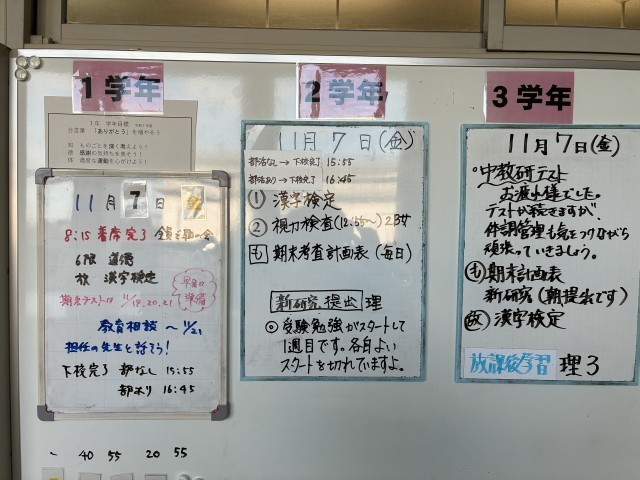 1学年
1年 学年目標
合言葉 「ありがとう」を増やそう
知 ものごとを深く考えよう!
徳 感謝の気持ちを表そう!
体 適度な運動を心がけよう!
11月7日 金
8:15 着席完了
6限 道徳
放 漢字検定
期末テストは 11/19.20.21
早めに
準備
教育相談 ~11/21
担任の先生と話そう!
下校完了 部なし 15:55
部あり 16:45
~ 40 55 20 55
2学年
11月7日(金)
部活なし→下校完了 15:55
部活あり→下校完了 16:45
① 漢字検定
② 視力検査(12:55~) 2B女
も 期末考査計画表(毎日)
新研究 提出 理
◎ 受験勉強がスタートして
1週目です。各自よい
スタートを切れていますよ。
3学年
11月7日(金)
・中教研テスト
お疲れ様でした。
テストが続きますが、
体調管理も気をつけながら
頑張っていきましょう。
も 期末計画表
新研究(朝提出です)
放 漢字検定
放課後学習 理3